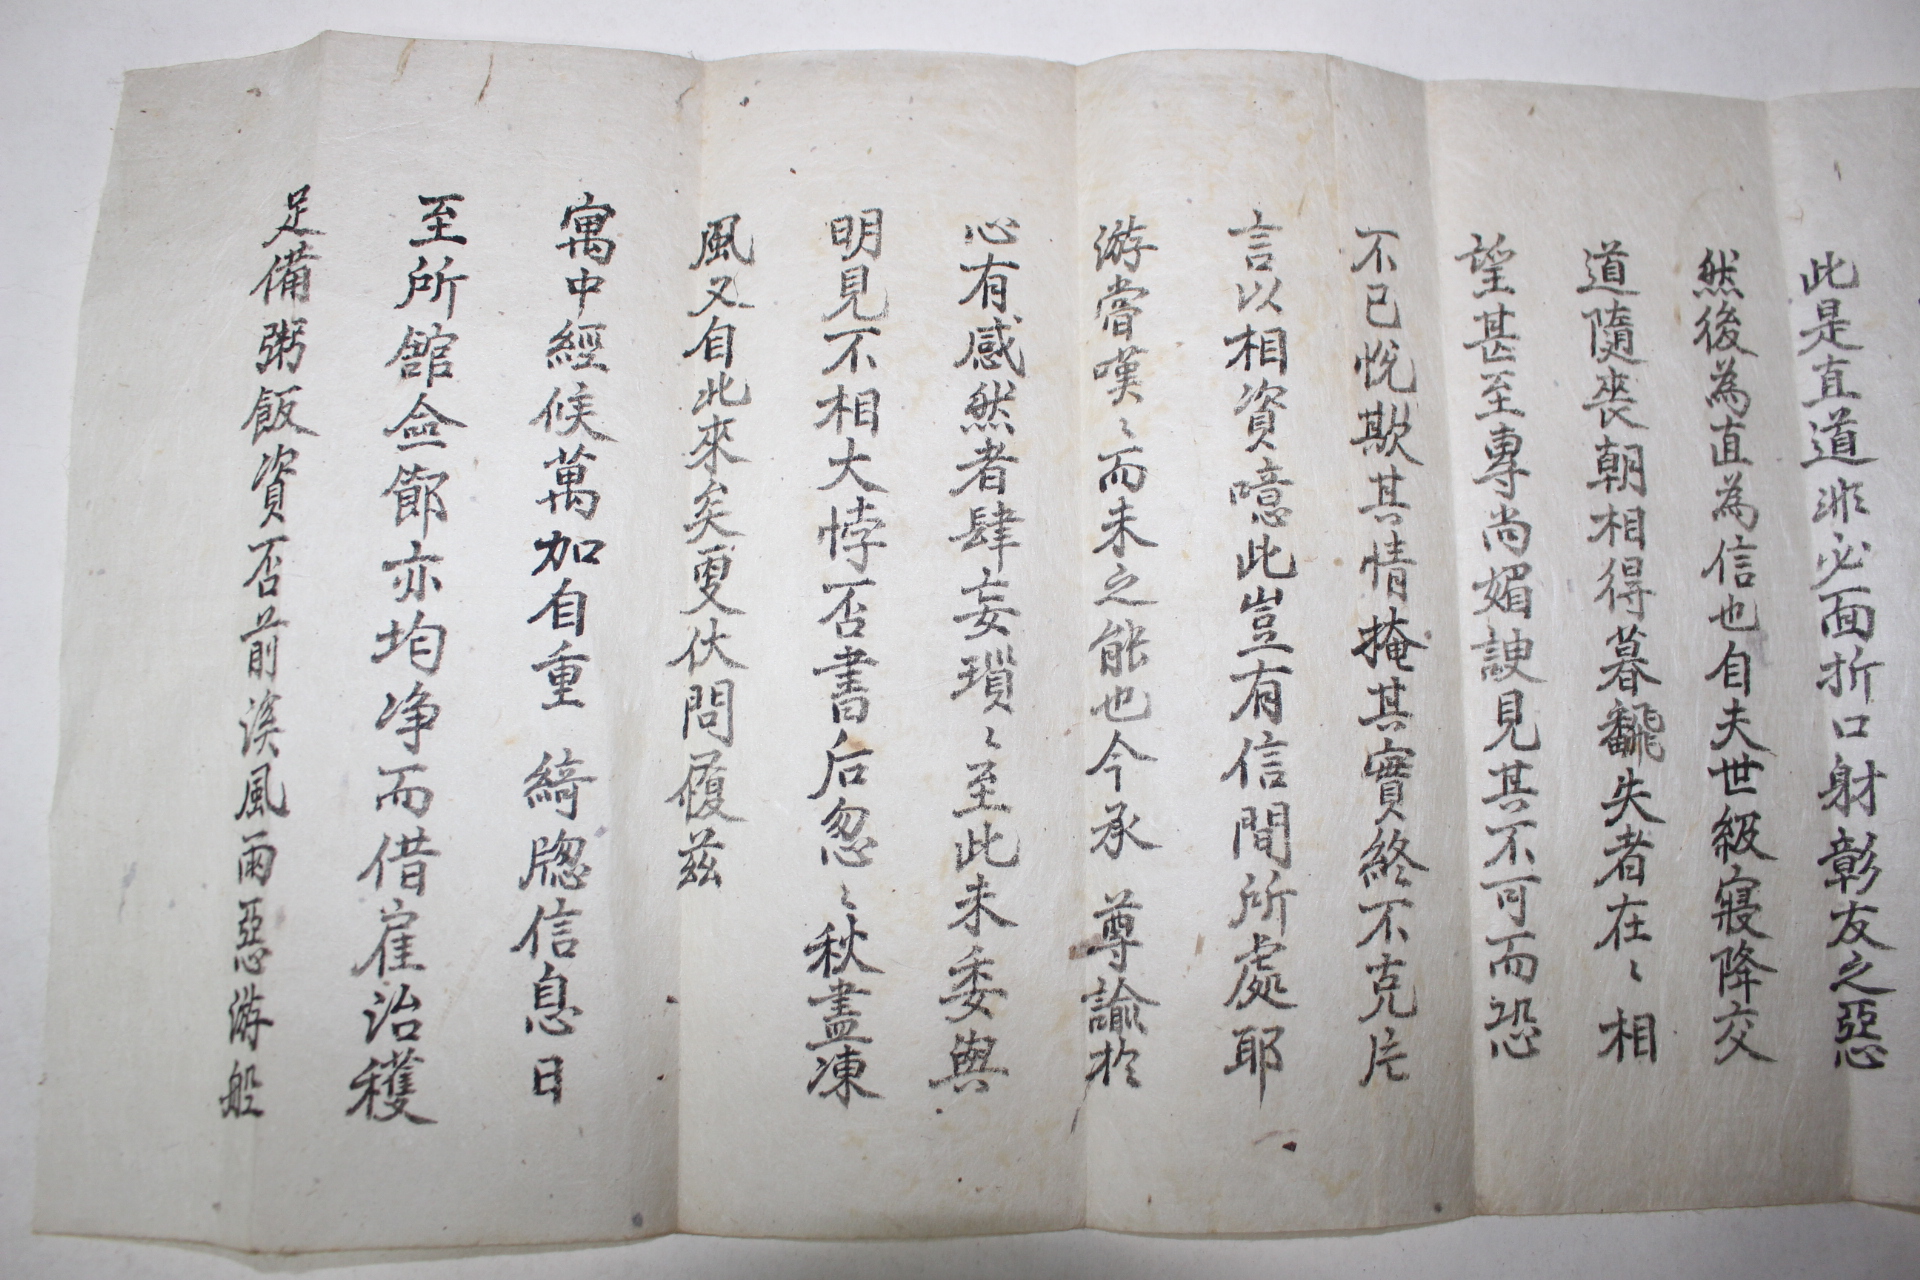 此是直道非必面折口射彰友之惡
然後為直為信也自夫世級寖降交
道隨喪朝相得暮飜失者在〻相
望甚至專尚媚諛見其不可而恐
不已悅欺其情掩其實終不克片
言以相資噫此豈有信間所處耶
游嘗嘆〻而未之能也今承 尊諭於
心有感然者肆妄瑣〻至此未委與
明見不相大悖否書后忽〻秋盡凍
風又自此來矣更伏問履茲
寓中經候萬加自重 綺牎信息日
至所舘僉節亦均净而借雇治穫
足備粥飯資否前溪風雨惡游般